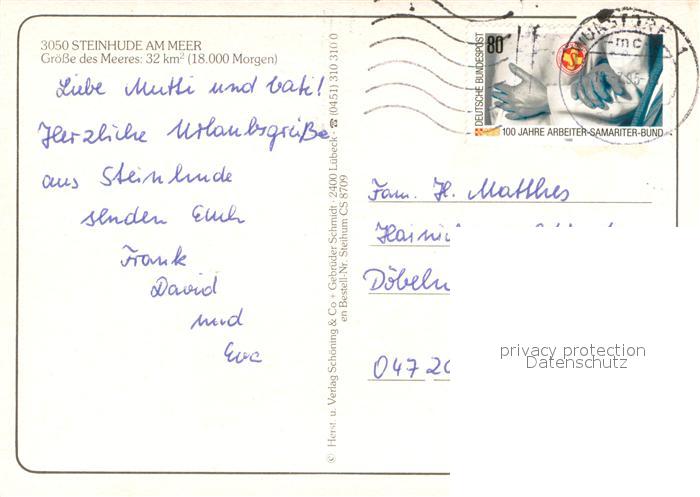 3050 STEINHUDE AM MEER
Größe des Meeres: 32 km² (18.000 Morgen)
Liebe Mutti und Vati!
Herzliche Urlaubsgrüße
aus Steinhude
senden Euch
Frank
David
und
Eva
© Herst. u. Verlag Schöning & Co + Gebrüder Schmidt · 2400 Lübeck · ☎ (0451) 310 310 0
en Bestell-Nr. Steihum CS 8709
80
DEUTSCHE BUNDESPOST
100 JAHRE ARBEITER-SAMARITER-BUND
WUNSTORF 1
mc
Fam. H. Matthes
Döbeln
04720
privacy protection
Datenschutz